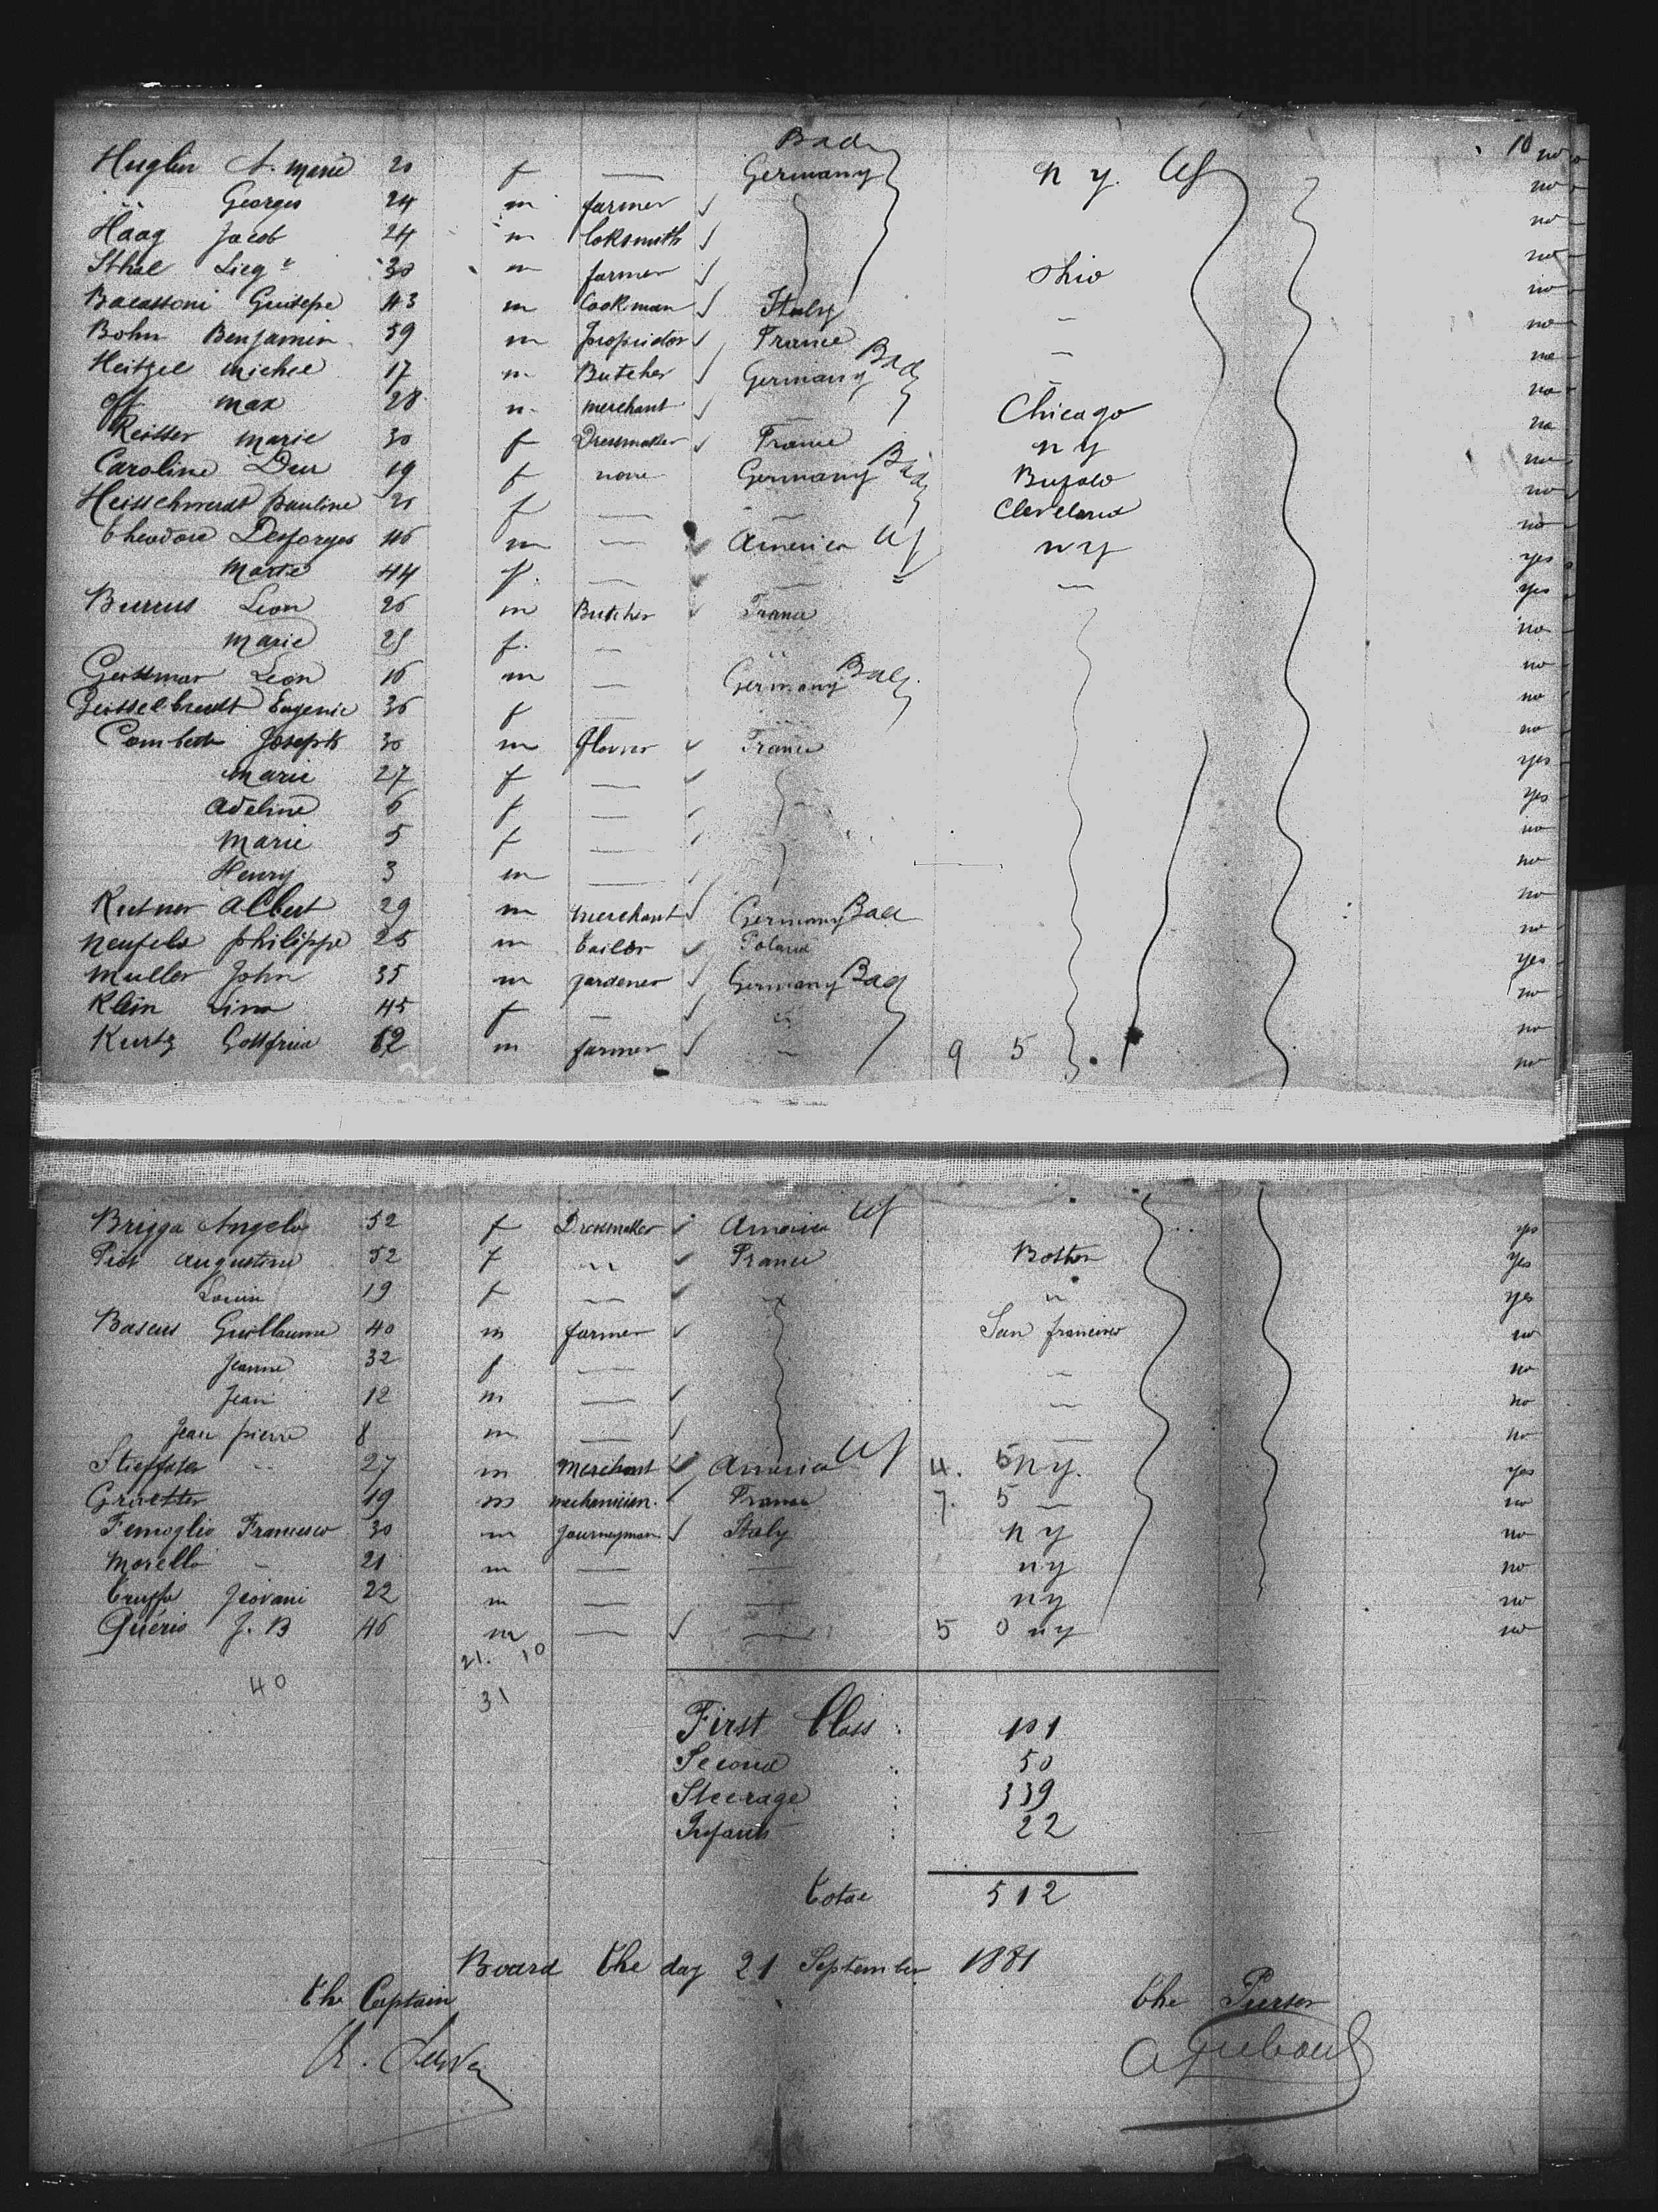 10
Bad
Huglin A. Marie 20 f — Germany n y. US no
" Georges 24 m farmer no
Häag Jacob 24 m loksmith no
Sthal Lieg 30 m farmer ohio no
Bacassoni Guisepe 43 m Cookman Italy — no
Bohn Benjamin 59 m proprietor France — no
Heitzel michel 17 m Butcher Germany Bad — no
Off max 28 m merchant — Chicago no
Reisser marie 30 f Dressmaker France n y no
Caroline Deu 19 f none Germany Bad Bufalo no
Pauline 20 f — — Cleveland no
theodore Desforges 46 m — America US n y yes
Marie 44 f. — — " — yes
Burrus Leon 26 m Butcher France no
marie 25 f. — " no
Geissmar Leon 16 m — Germany Bad no
Eugenie 36 f — " no
Combette Joseph 30 m glover France yes
marie 27 f — yes
Adeline 6 f — no
Marie 5 f — no
Henry 3 m — no
Kutner Albert 29 m merchant Germany Bad no
Neufeld philippe 25 m tailor Poland yes
Muller John 35 m gardener Germany Bad no
Klein Lina 45 f — " no
Kurtz Gottfried 62 m farmer — 9 5 no
Brigga Angela 52 f Dressmaker America US yes
Piot augustine 52 f " France Boston yes
Louise 19 f — " " yes
Bascus Guillaume 40 m farmer San francisco no
Jeanne 32 f — — no
Jean 12 m — — no
Jean pierre 8 m — — no
27 m Merchant America US 4. 5 n y. yes
19 m mechanician. France 7. 5 — no
Femoglio Francesco 30 m Journeyman Italy n y no
Morello — 21 m — — n y no
truffo Jiovani 22 m — — n y no
Quério J. B 46 m — — 5 0 n y no
21. 10
40 31
First Class : 101
Second : 50
Steerage : 339
Infants : 22
total 512
Board the day 21 September 1881
the Captain the Purser